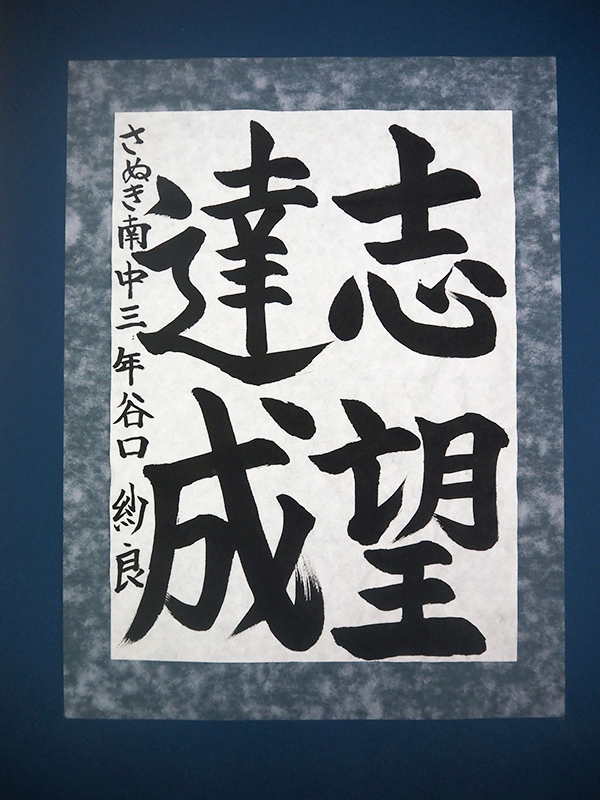 志望
達成
さぬき南中三年谷口紗良